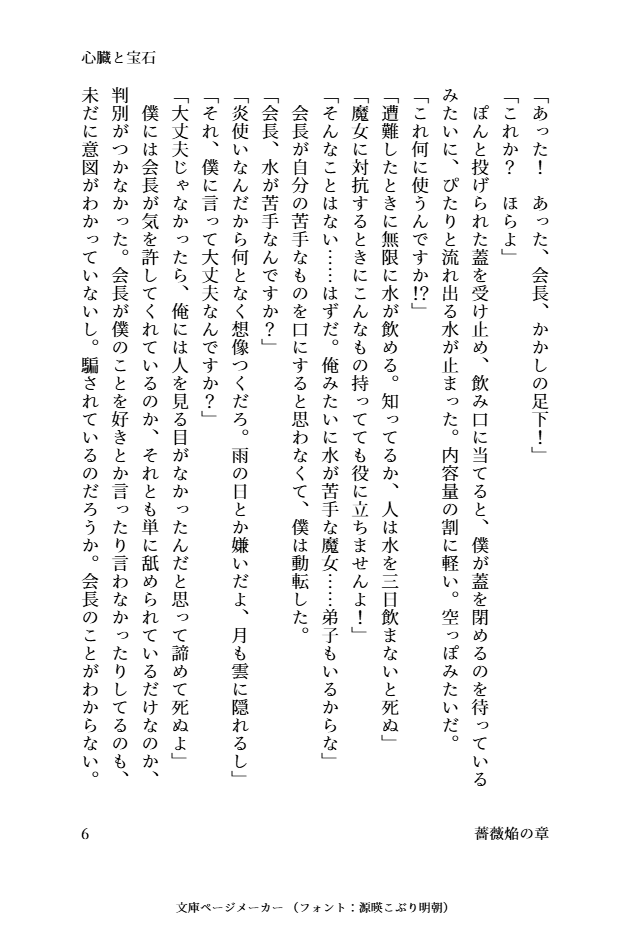 心臓と宝石
「あった！　あった、会長、かかしの足下！」
「これか？　ほらよ」
　ぽんと投げられた蓋を受け止め、飲み口に当てると、僕が蓋を閉めるのを待っている
みたいに、ぴたりと流れ出る水が止まった。内容量の割に軽い。空っぽみたいだ。
「これ何に使うんですか!?」
「遭難したときに無限に水が飲める。知ってるか、人は水を三日飲まないと死ぬ」
「魔女に対抗するときにこんなもの持ってても役に立ちませんよ！」
「そんなことはない……はずだ。俺みたいに水が苦手な魔女……弟子もいるからな」
　会長が自分の苦手なものを口にすると思わなくて、僕は動転した。
「会長、水が苦手なんですか？」
「炎使いなんだから何となく想像つくだろ。雨の日とか嫌いだよ、月も雲に隠れるし」
「それ、僕に言って大丈夫なんですか？」
「大丈夫じゃなかったら、俺には人を見る目がなかったんだと思って諦めて死ぬよ」
　僕には会長が気を許してくれているのか、それとも単に舐められているだけなのか、
判別がつかなかった。会長が僕のことを好きとか言ったり言わなかったりしてるのも、
未だに意図がわかっていないし。騙されているのだろうか。会長のことがわからない。
6
薔薇焔の章
文庫ページメーカー（フォント：源暎こぶり明朝）